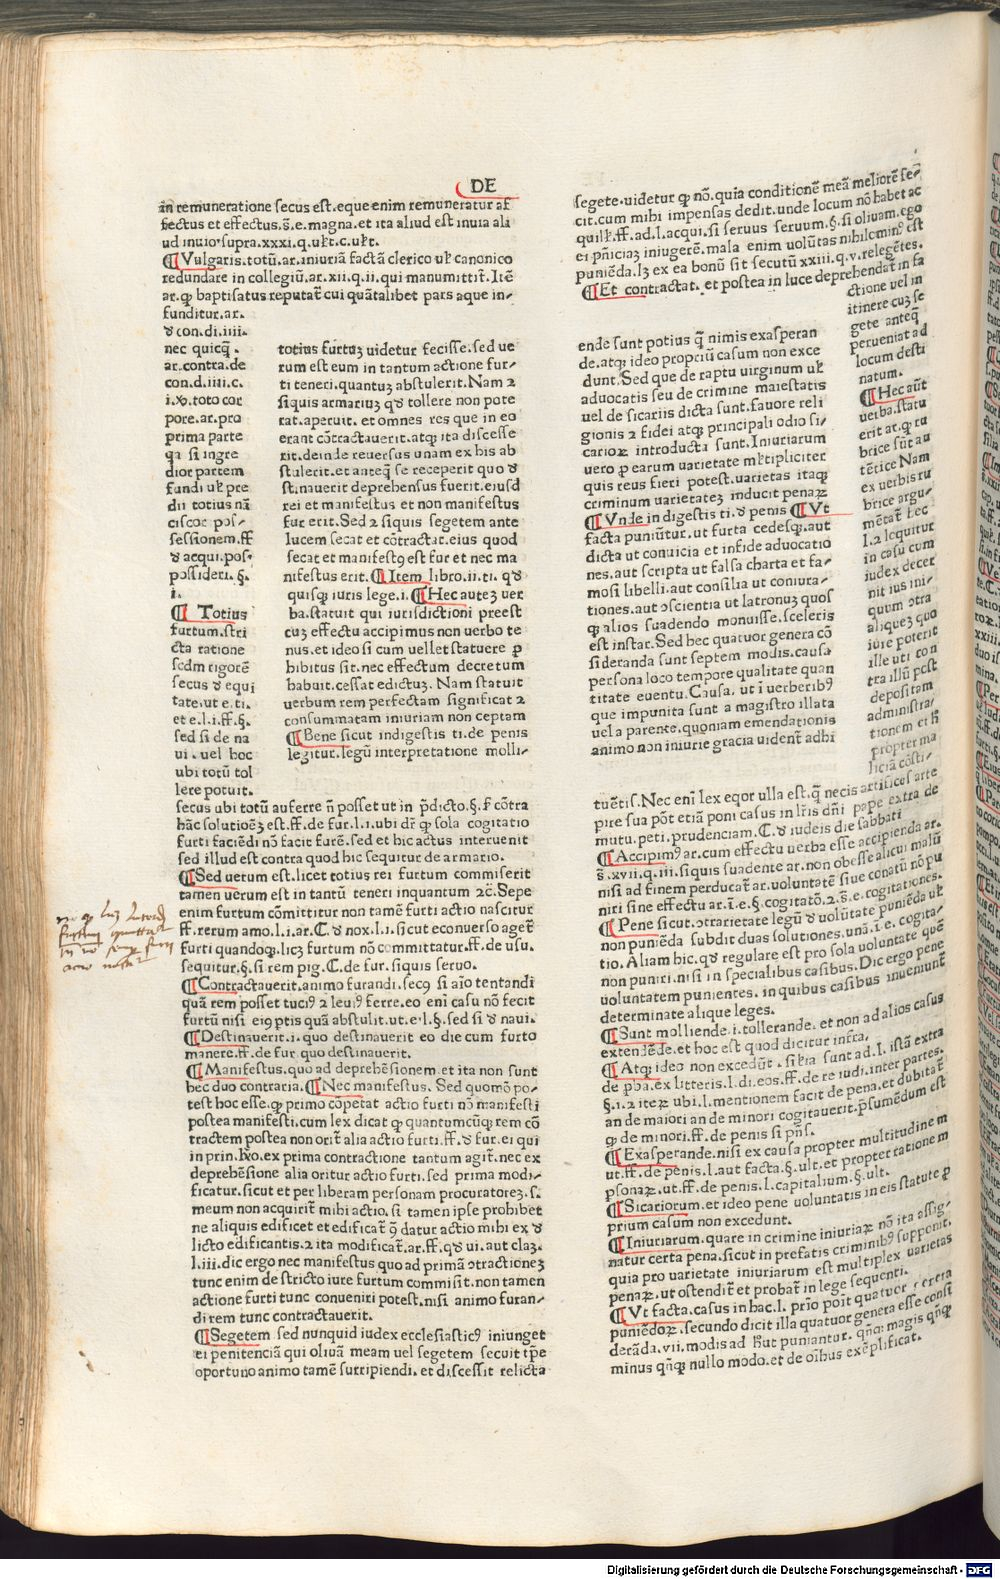 DE
in remuneratione secus est. eque enim remuneratur af
fectus et effectus. s̄. e. magna. et ita aliud est in uia ali
ud in uio. supra. xxxi. q. ult. c. ult.
¶ Vulgaris. totū. ar. iniuriā factā clerico ul canonico
redundare in collegiū. ar. xii. q. ii. qui manumittit̄. Itē
ar. ꝙ baptisatus reputat̄ cui quātalibet pars aque in-
funditur. ar.
ꝺ con. di. iiii.
nec quicꝗ.
ar. contra. de
con. d. iiii. c.
i. toto cor
pore. ar. pro
prima parte
qa si ingre
dior partem
fundi ul pre
dii totius nā
ciscor pos-
sessionem. ff
ꝺ acqui. pos.
possideri. §.
i.
¶ Totius
furtum. stri
cta ratione
scdm rigorē
secus ꝺ equi
tate. ut e. ti.
et e. l. i. ff. §.
sed si de na
ui. uel hoc
ubi totū tol
lere potuit.
totius furtuꝫ uidetur fecisse. sed ue
rum est eum in tantum actione fur-
ti teneri. quantuꝫ abstulerit. Nam ⁊
si quis armariuꝫ qꝺ tollere non pote
rat. aperuit. et omnes res que in eo
erant cōtractauerit. atqꝫ ita discesse
rit. deinde reuersus unam ex his ab
stulerit. et anteqꝫ se receperit quo ꝺ
stinauerit deprehensus fuerit. eiusd
rei et manifestus et non manifestus
fur erit. Sed ⁊ siquis segetem ante
lucem secat et cōtractat. eius quod
secat et manifestꝰ est fur et nec ma
nifestus erit. ¶ Item libro. ii. ti. qꝺ
quisqꝫ iuris lege. i. ¶ Hec auteꝫ uer
ba. statuit qui iurisdictioni preest
cuꝫ effectu accipimus non uerbo te
nus. et ideo si cum uellet statuere ꝑ
hibitus sit. nec effectum decretum
habuit. cessat edictuꝫ. Nam statuit
uerbum rem perfectam significat ⁊
consummatam iniuriam non ceptam
¶ Bene sicut in digestis ti. de penis
legitur. legū interpretatione molli-
secus ubi totū auferre n̄ posset ut in p̄dicto. §. r̄ cōtra
hāc solutioēꝫ est. ff. de fur. l. i. ubi dr̄ ꝙ sola cogitatio
furti faciēdi nō facit furē. sed et hic actus interuenit
sed illud est contra quod hic sequitur de armario.
¶ Sed uerum est. licet totius rei furtum commiserit
tamen uerum est in tantū teneri inquantum ⁊c̄. Sepe
enim furtum cōmittitur non tamē furti actio nascitur
ff. rerum amo. l. i. ar. C. ꝺ nox. l. i. sicut econuerso aget̄
furti quandoqꝫ. licꝫ furtum nō committatur. ff. de usu.
sequitur. §. si rem pig. C. de fur. si quis seruo.
¶ Contractauerit. animo furandi. secꝰ si aīo tentandi
quā rem posset tuciꝰ ⁊ leuiꝰ ferre. eo enī casu nō fecit
furtū nisi eiꝰ ptis quā abstulit. ut. e. l. §. sed si ꝺ naui.
¶ Destinauerit. i. quo destinauerit eo die cum furto
manere. ff. de fur. quo destinauerit.
¶ Manifestus. quo ad deprehēsionem. et ita non sunt
hec duo contraria. ¶ Nec manifestus. Sed quomō po-
test hoc esse. ꝙ primo cōpetat actio furti nō manifesti
postea manifesti. cum lex dicat ꝙ quantumcūqꝫ rem cō
tractem postea non orit̄ alia actio furti. ff. ꝺ fur. ei qui
in prin. ex prima contractione tantum agit̄. nec ex
deprehēsione alia oritur actio furti. sed prima modi-
ficatur. sicut et per liberam personam procuratoreꝫ. s.
meum non acquirit̄ mihi actio. si tamen ipse prohibet
ne aliquis edificet et edificat̄ ꝯ datur actio mihi ex ꝺ
licto edificantis. ⁊ ita modificat̄. ar. ff. qꝺ ui. aut claꝫ.
l. iii. dic ergo nec manifestus quo ad primā ꝯtractioneꝫ
tunc enim de stricto iure furtum commisit. non tamen
actione furti tunc conueniri potest. nisi animo furan-
di rem tunc contractauerit.
¶ Segetem sed nunquid iudex ecclesiasticꝰ iniunget
ei penitenciā qui oliuā meam uel segetem secuit tp̄e
oportuno animo tamē surripiendi. et discessit relicta
segete. uidetur ꝙ nō. quia conditionē meā meliorē fe-
cit. cum mihi impensas dedit. unde locum nō habet ac
quil. ff. ad. l. acqui. si seruus seruum. §. si oliuam. ego
ei pn̄iciaꝫ iniugerē. mala enim uolūtas nibilominꝰ est
puniēda. lꝫ ex ea bonū sit secutū xxiii. q. v. relegētes.
¶ Et contractat. et postea in luce deprehendat̄ in fa
ctione uel in
itinere cuꝫ se
gete anteꝗ
perueniat ad
locum desti
natum.
¶ Hec aūt
uerba. statu
erit ar. ꝙ ru
brice sūt au
tētice Nam
ex uerbis ru
brice argu-
mētat̄ hec
l. ⁊ loquitur
in casu cum
iudex decer
nit ius ini-
quum ꝯtra
aliqueꝫ quo
iure poterit
ille uti con
tra illū post
depositam
administra-
tionem et h̄
propter ma
liciā cōsti-
ende sunt potius ꝗ nimis exasperan
de. atqꝫ ideo propriū casum non exce
dunt. Sed que de raptu uirginum ul
aduocatis seu de crimine maiestatis
uel de sicariis dicta sunt. fauore reli
gionis ⁊ fidei atqꝫ principali odio si-
carioꝝ introducta sunt. Iniuriarum
uero ꝑ earum uarietate mltipliciter
quis reus fieri potest. uarietas itaqꝫ
criminum uarietateꝫ inducit penaꝝ
¶ Vnde in digestis ti. ꝺ penis ¶ Vt
facta puniūtur. ut furta cedesqꝫ. aut
dicta ut conuicia et infide aduocatio
nes. aut scripta ut falsa charta et fa-
mosi libelli. aut consilia ut coniura-
tiones. aut ꝯscientia ut latronuꝫ quos
ꝙ alios suadendo monuisse. sceleris
est instar. Sed hec quatuor genera cō
sideranda sunt septem modis. causa
persona loco tempore qualitate quan
titate euentu. Causa. ut ī uerberibꝰ
que impunita sunt a magistro illata
uel a parente. quoniam emendationis
animo non iniurie gracia uident̄ adhi
tuētis. Nec enī lex eqor ulla est. ꝗ necis artifices arte
pire sua pōt etiā poni casus in lr̄is dn̄i pape extra de
mutu. peti. prudenciam. C. ꝺ iudeis die sabbati
¶ Accipimꝰ ar. cum effectu uerba esse accipienda ar.
s̄. xvii. q. iii. si quis suadente ar. non obesse alicui malū
nisi ad finem perducat̄. ar. uoluntatē siue conatū nō pu
niri sine effectu ar. ī. e. §. cogitatō. ⁊. s̄. e. cogitationes.
¶ Pene sicut. ꝯtrarietate legū ꝺ uolūtate puniēda ul
non puniēda subdit duas solutiones. unā. i. e. cogita-
tio. Aliam hic. qꝺ regulare est pro sola uoluntate quē
non puniri. nisi in specialibus casibus. Dic ergo pene
uoluntatem punientes. in quibus casibus inueniunt̄
determinate alique leges.
¶ Sunt molliende. i. tollerande. et non ad alios casus
extendēde. et hoc est quod dicitur infra.
¶ Atqꝫ ideo non excedūt. silia sunt ad. l. istā extra
de pba. ex litteris. l. di. eos. ff. de re iudi. inter partes.
§. i. ⁊ iteꝝ ubi. l. mentionem facit de pena. et dubitat̄
an de maiori an de minori cogitauerit. p̄sumēdum est
ꝙ de minori. ff. de penis si pn̄s.
¶ Exasperande. nisi ex causa propter multitudinem
ut. ff. de penis. l. aut facta. §. ult. et propter rationem
ꝑsonaꝝ. ut. ff. de penis. l. capitalium. §. ult.
¶ Sicariorum. et ideo pene uoluntatis in eis statute ꝓ
prium casum non excedunt.
¶ Iniuriarum. quare in crimine iniuriaꝝ nō ita assig-
natur certa pena. sicut in prefatis criminibꝰ supponit.
quia pro uarietate iniuriarum est multiplex uarietas
penaꝝ. ut ostendit̄ et probat̄ in lege sequenti.
¶ Vt facta. casus in hac. l. prīo poīt quatuor genera
puniēdoꝝ. secundo dicit illa quatuor genera esse consi
derāda. vii. modis ad hūt puniantur. qn̄qꝫ magis qn̄qꝫ
minus qn̄qꝫ nullo modo. et de oībus exēplificat.
Digitalisierung gefördert durch die Deutsche Forschungsgemeinschaft - DFG